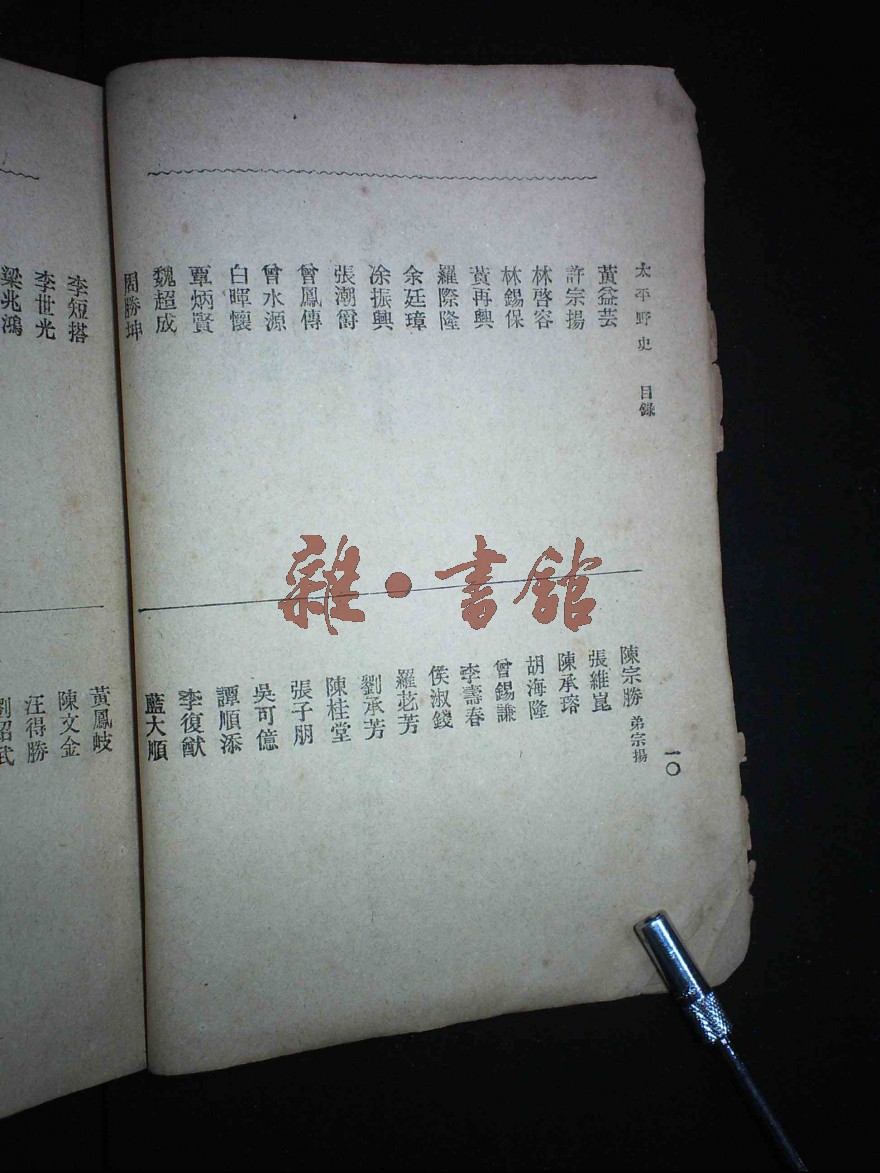 太平野史　目錄
一〇
黃益芸
許宗揚
林啓容
林錫保
黃再興
羅際隆
余廷璋
涂振興
張潮爵
曾鳳傳
曾水源
白暉懷
覃炳賢
魏超成
周勝坤
陳宗勝 弟宗揚
張維崑
陳承瑢
胡海隆
曾錫謙
李壽春
侯淑錢
羅苾芳
劉承芳
陳桂堂
張子朋
吳可億
譚順添
李復猷
藍大順
李短搭
李世光
梁兆鴻
黃鳳岐
陳文金
汪得勝
劉紹武
雜·書館